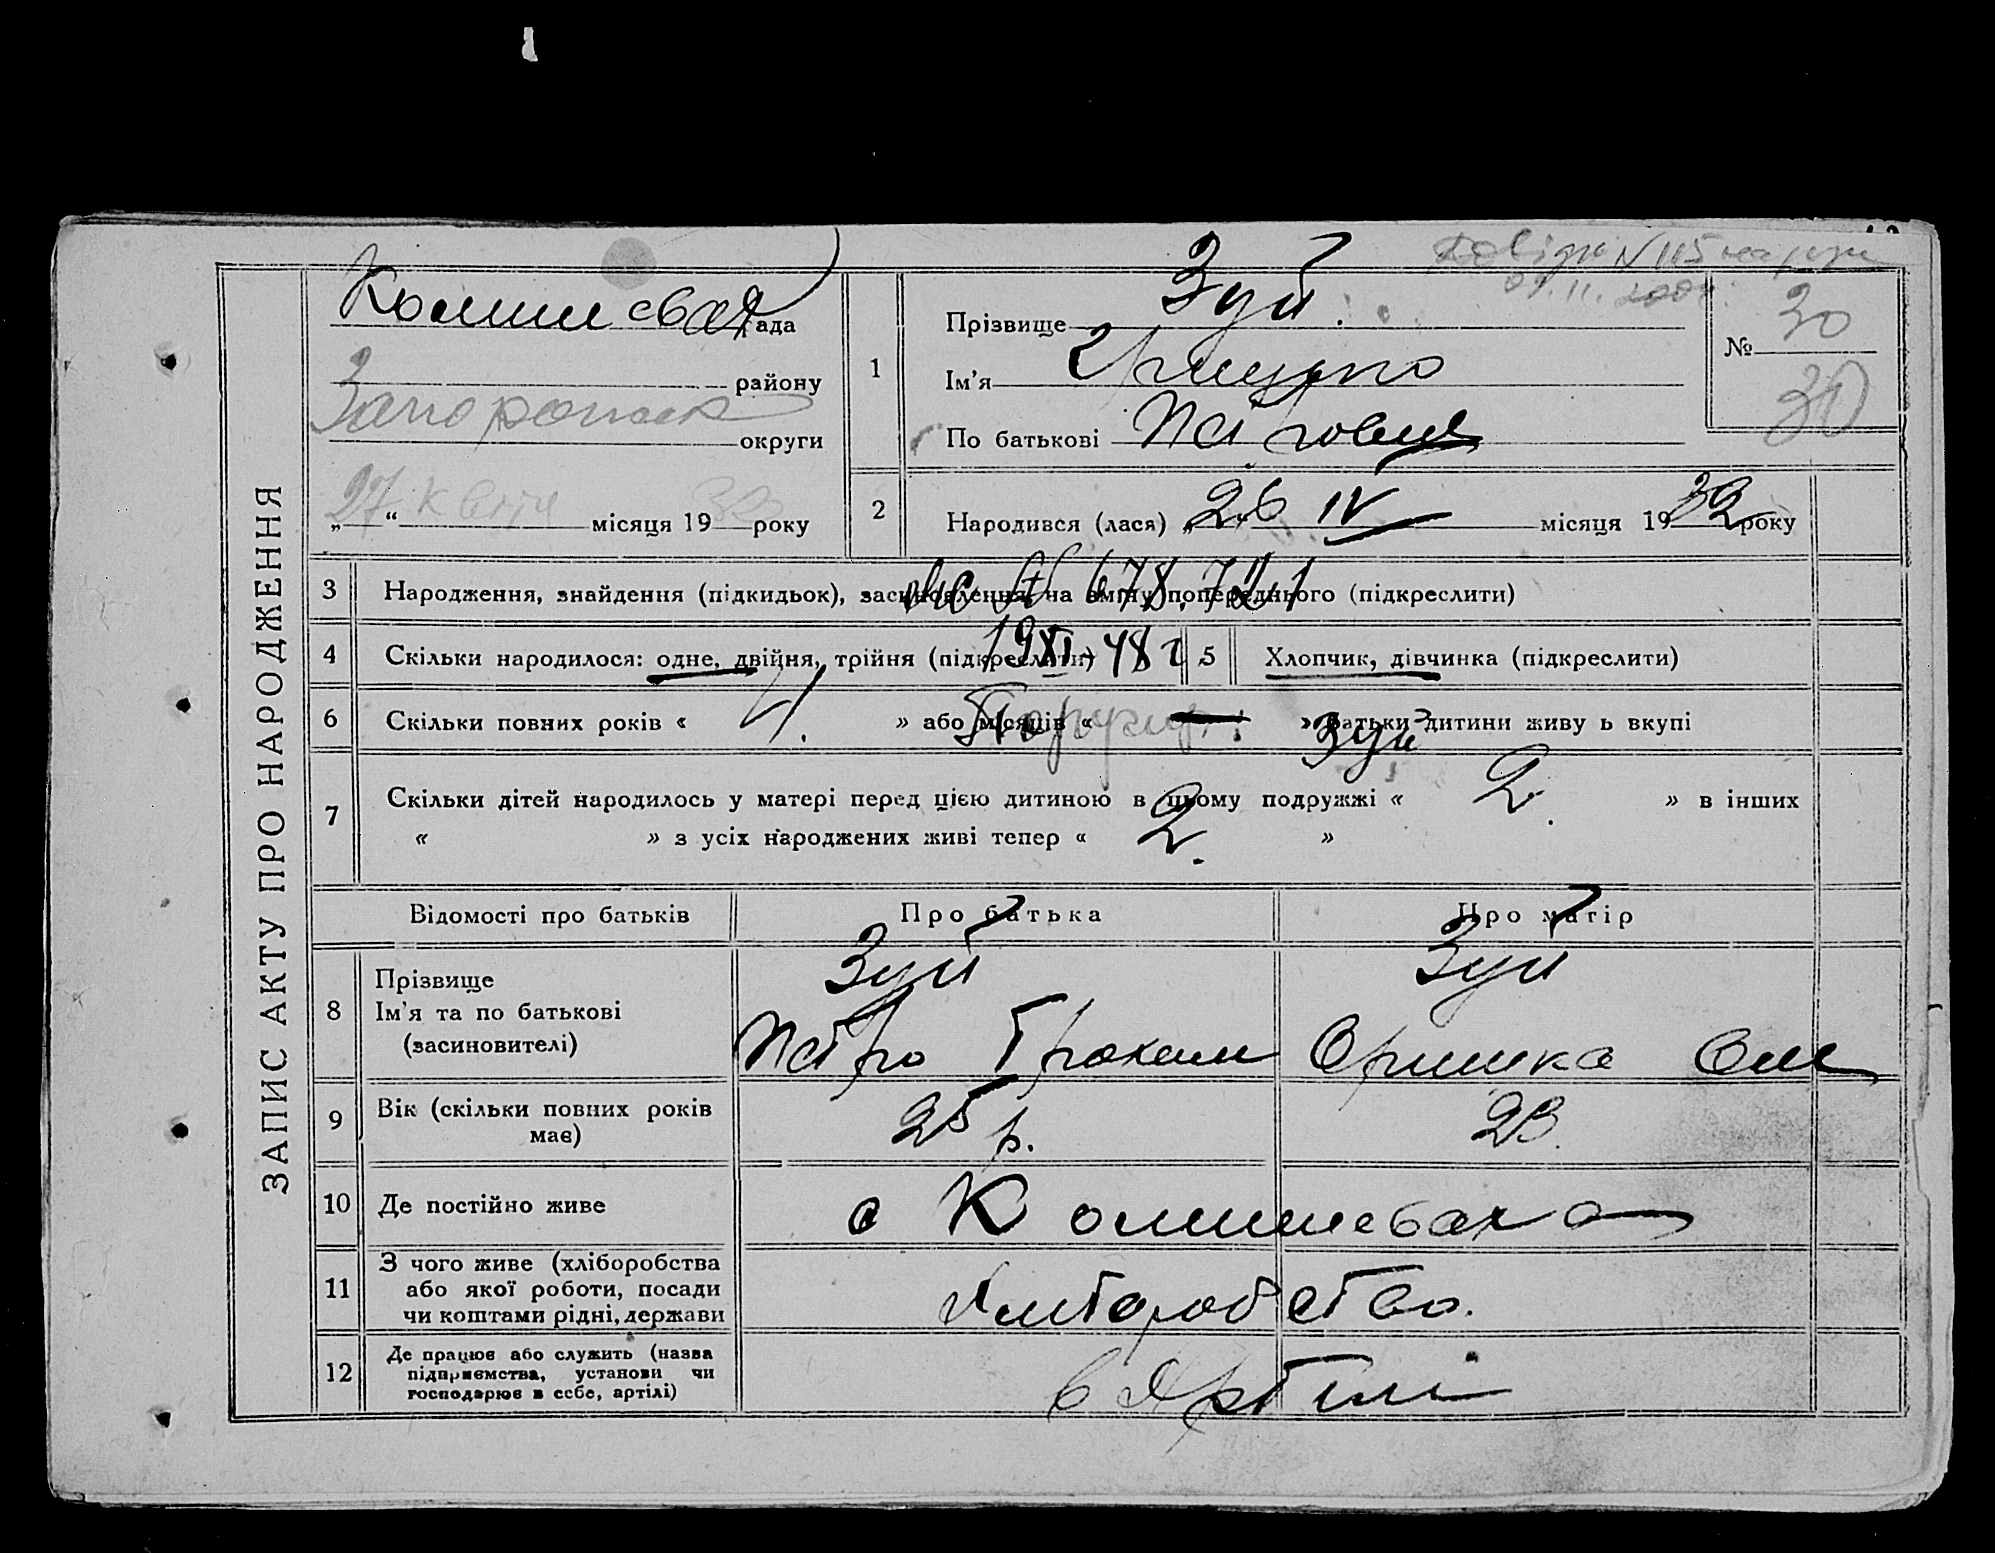 ЗАПИС АКТУ ПРО НАРОДЖЕННЯ
Комишевах рада
району
Запорожж округи
„27“ квітня місяця 1932 року
1
Прізвище Зуй
Ім'я
По батькові Петрович
№ 30
30
2 Народився (лася) „26 IV місяця 1932 року
3 Народження, знайдення (підкидьок), засиновлення на зміну попереднього (підкреслити)
4 Скільки народилося: одне, двійня, трійня (підкреслити)
19 XI-48 г
5 Хлопчик, дівчинка (підкреслити)
6 Скільки повних років « 4. » або місяців « — » батьки дитини живу ь вкупі
Зуй
7 Скільки дітей народилось у матері перед цією дитиною в цьому подружжі « 2. » в інших
« » з усіх народжених живі тепер « 2. »
Відомості про батьків Про батька Про матір
8 Прізвище
Ім'я та по батькові
(засиновителі)
Зуй
Петро
Зуй
Оришка
9 Вік (скільки повних років
має)
25 р.
23
10 Де постійно живе
с Комишеваха
11 З чого живе (хліборобства
або якої роботи, посади
чи коштами рідні, держави
Хліборобство.
12 Де працює або служить (назва
підприємства, установи чи
господарює в себе, артілі)
в Артілі